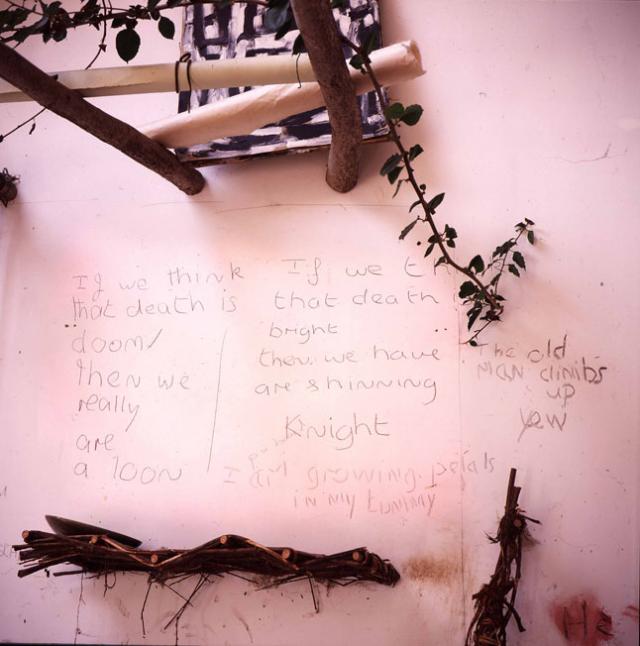 If we think
that death is
doom/
then we
really
are
a loon
If we th
that death
bright
then we have
are shinning
Knight
I am growing petals
in my tummy
The old
man climbs
up
yew
He